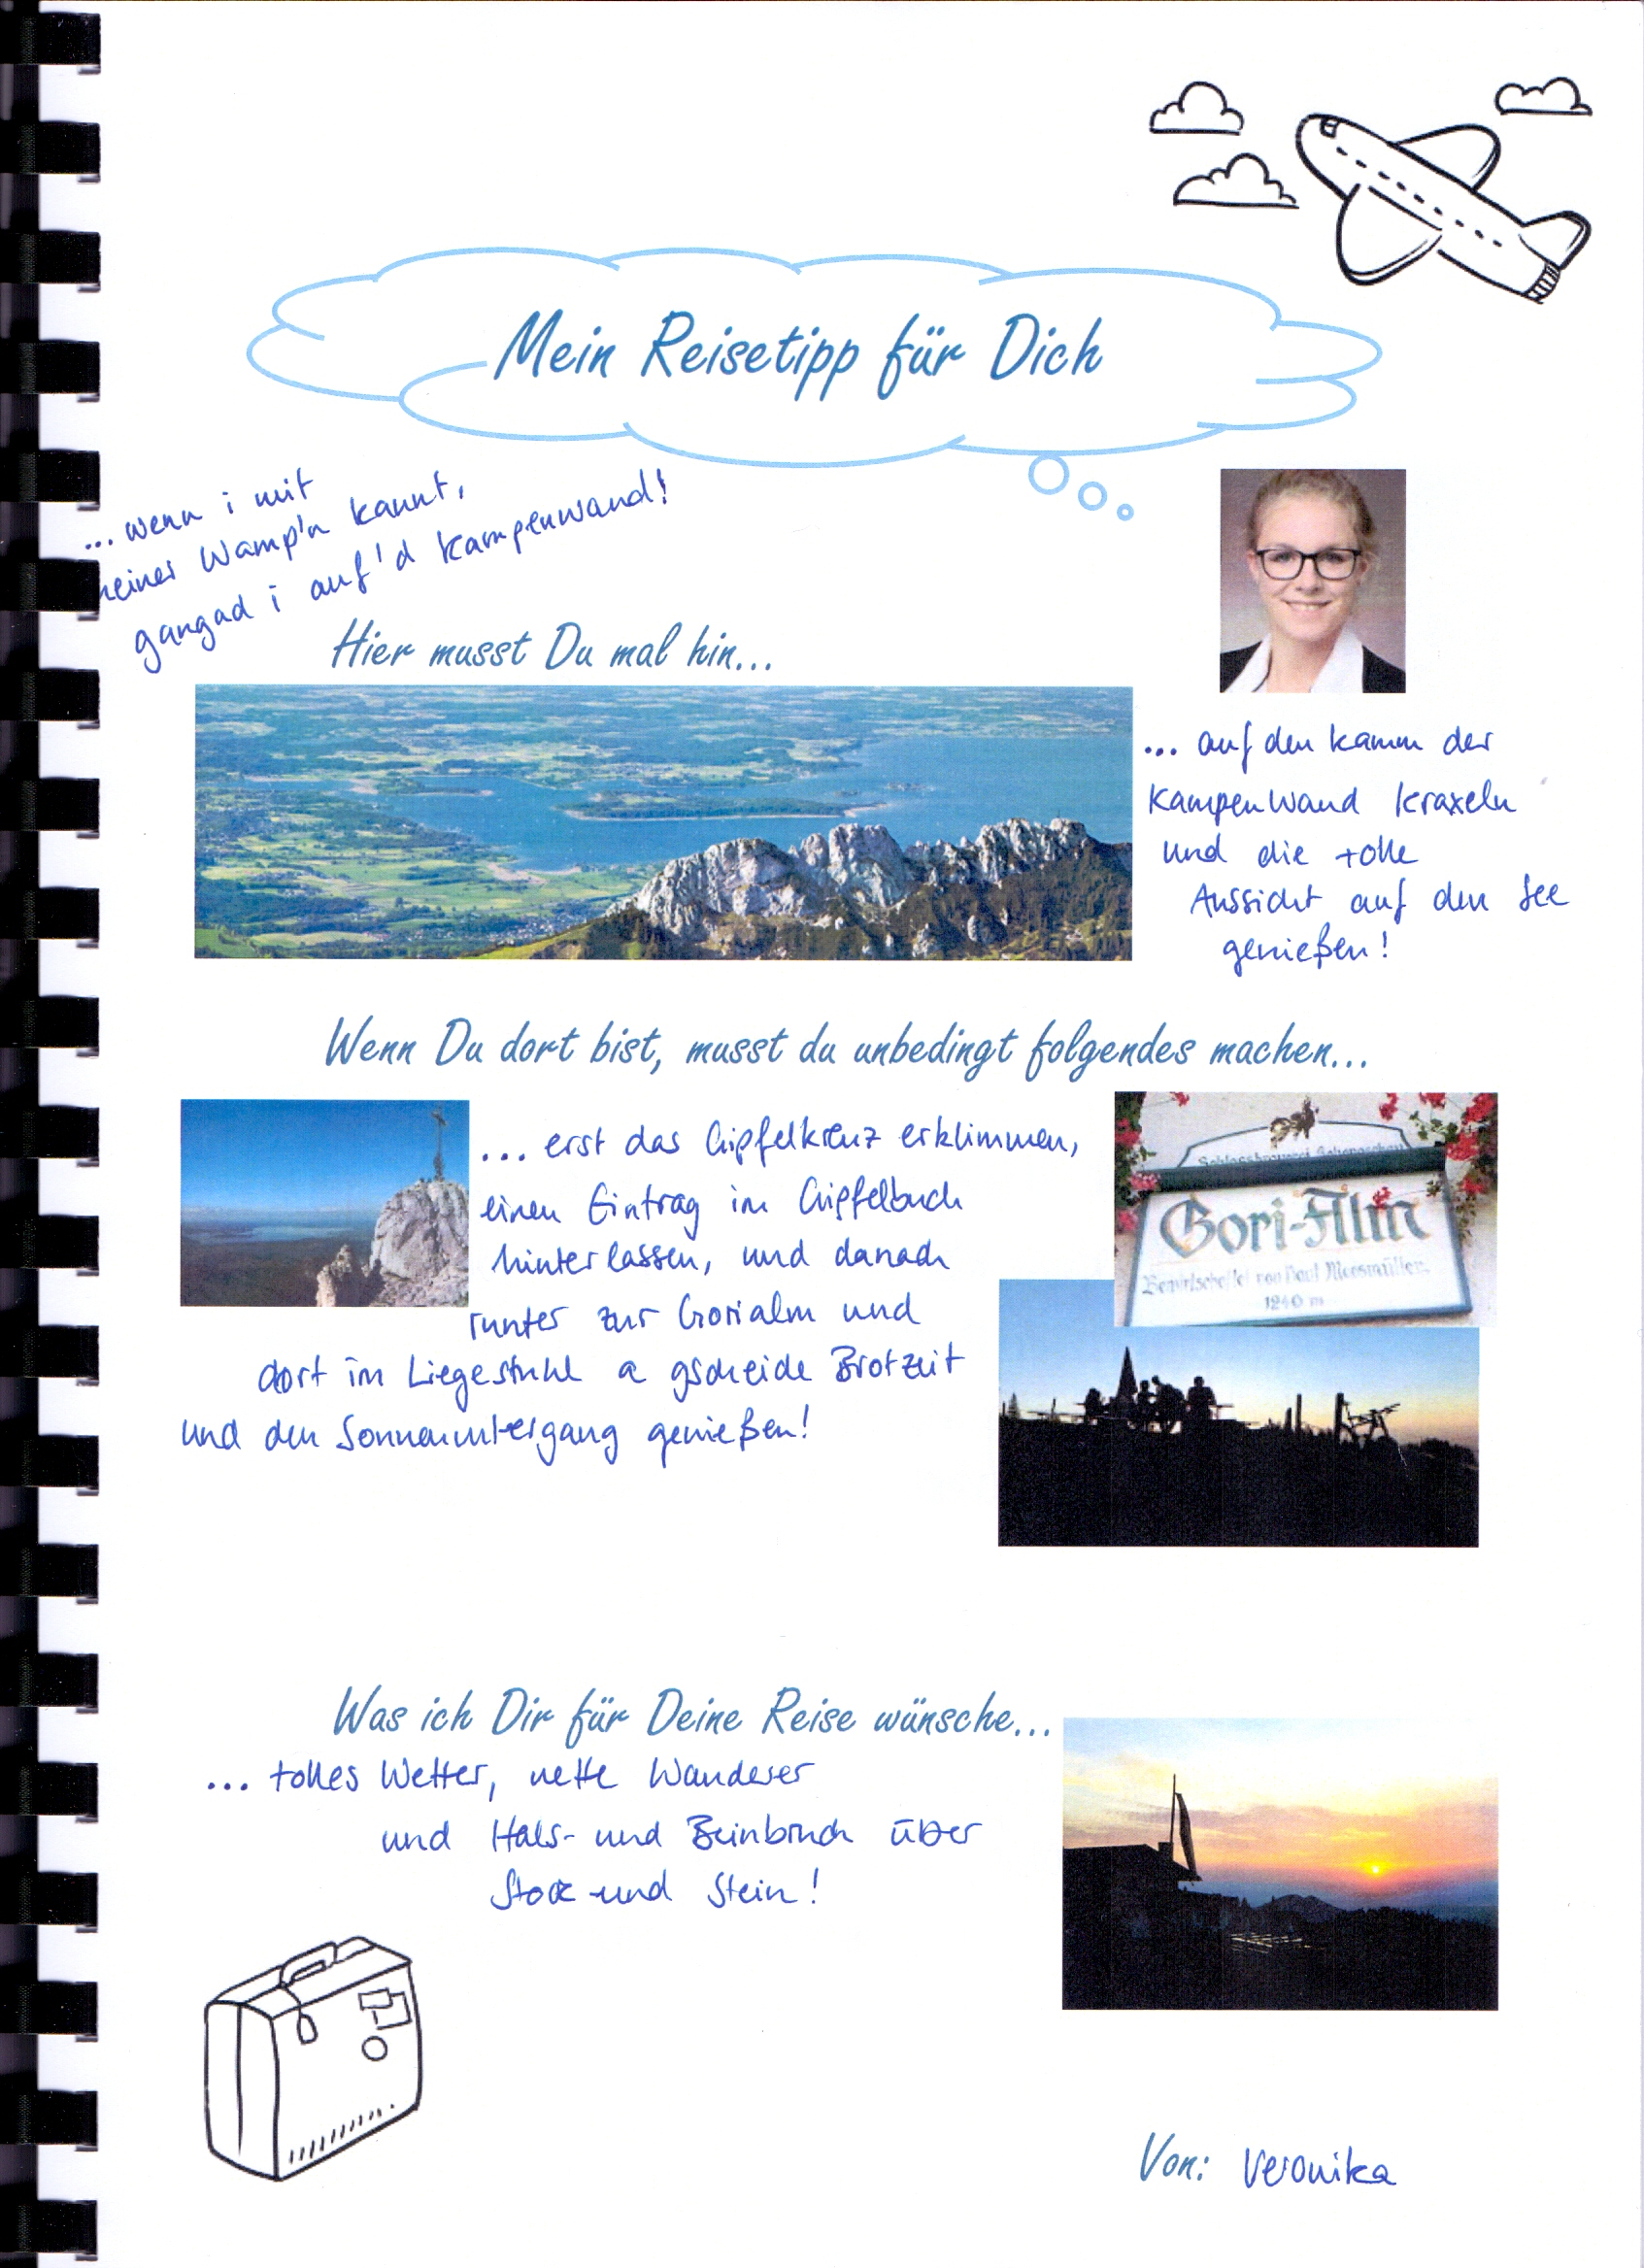 Mein Reisetipp für Dich
... wenn i mit
meiner Wamp'n kannt,
gangad i auf'd Kampenwand!
Hier musst Du mal hin...
... auf den Kamm der
Kampenwand kraxeln
und die tolle
Aussicht auf den See
genießen!
Wenn Du dort bist, musst du unbedingt folgendes machen...
... erst das Gipfelkreuz erklimmen,
einen Eintrag im Gipfelbuch
hinterlassen, und danach
runter zur Gorialm und
dort im Liegestuhl a gscheide Brotzeit
und den Sonnenuntergang genießen!
Gori-Alm
Bewirtschaftet von Paul Moosmüller
1240 m
Was ich Dir für Deine Reise wünsche...
... tolles Wetter, nette Wanderer
und Hals- und Beinbruch über
Stock und Stein!
Von: Veronika